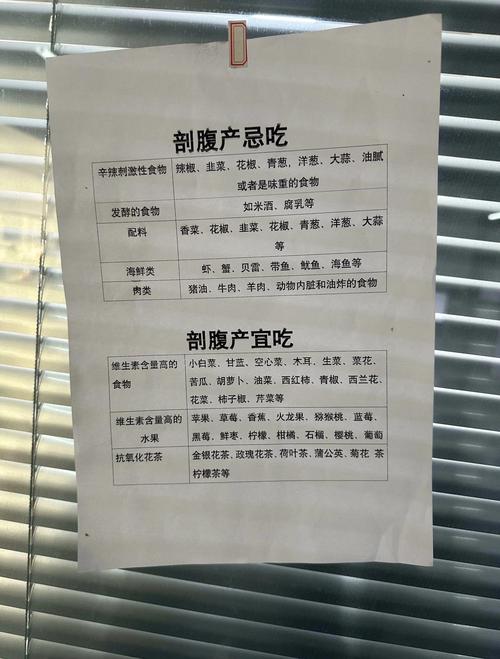 剖腹产忌吃
辛辣刺激性食物 辣椒、韭菜、花椒、青葱，洋葱、大蒜、油腻
或者是味重的食物
发酵的食物 如米酒、腐乳等
配料 香菜、花椒、韭菜、花椒、青葱、洋葱、大蒜
等
海鲜类 虾、蟹、贝雷、带鱼、鱿鱼、海鱼等
肉类 猪油、牛肉、羊肉、动物内脏和油炸的食物
剖腹产宜吃
维生素含量高的 小白菜、甘蓝、空心菜、木耳、生菜、菜花、
食物 苦瓜、胡萝卜、油菜、西红柿、青椒、西兰花、
花菜、柿子椒、芹菜等
维生素含量高的 苹果、草莓、香蕉、火龙果、猕猴桃、蓝莓、
水果 黑莓、鲜枣、柠檬、柑橘、石榴、樱桃、葡萄
抗氧化花茶 金银花茶、玫瑰花茶、荷叶茶、蒲公英、菊花 茶
柠檬茶等